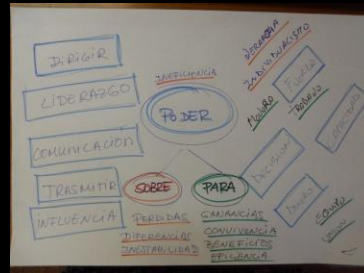 DIRIGIR
LIDERAZGO
COMUNICACIÓN
TRASMITIR
INFLUENCIA
INEFICIENCIA
PODER
SOBRE
PARA
PERDIDAS
DIFERENCIAS
INESTABILIDAD
GANANCIAS
CONVIVENCIA
BENEFICIOS
EFICIENCIA
INDIVIDUALISTO
FUERZA
TRABAJO
DECISION
DINERO
EQUIPO